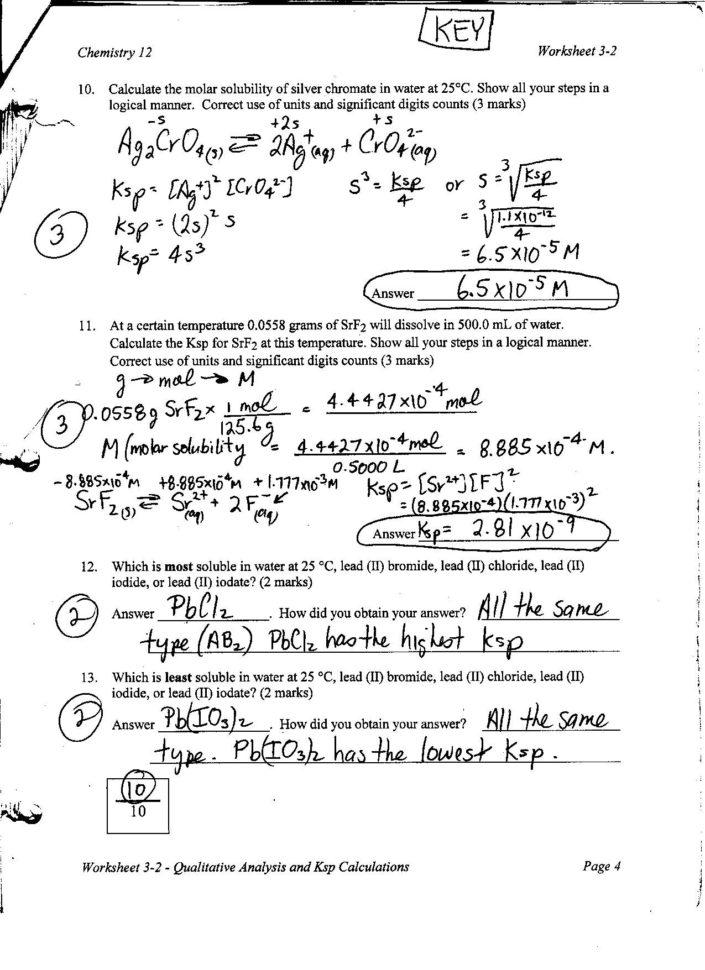 KEY
Chemistry 12 Worksheet 3-2
10. Calculate the molar solubility of silver chromate in water at 25°C. Show all your steps in a
logical manner. Correct use of units and significant digits counts (3 marks)
-s +2s +s
Ag₂CrO₄(s) ⇌ 2Ag⁺(aq) + CrO₄²⁻(aq)
Ksp = [Ag⁺]² [CrO₄²⁻] s³ = Ksp/4 or s = ³√(Ksp/4)
3 Ksp = (2s)² s = ³√(1.1x10⁻¹²/4)
Ksp = 4s³ = 6.5 x10⁻⁵ M
Answer 6.5 x10⁻⁵ M
11. At a certain temperature 0.0558 grams of SrF₂ will dissolve in 500.0 mL of water.
Calculate the Ksp for SrF₂ at this temperature. Show all your steps in a logical manner.
Correct use of units and significant digits counts (3 marks)
g → mol → M
3 0.0558g SrF₂ x 1 mol/125.6g = 4.4427 x10⁻⁴ mol
M (molar solubility = 4.4427x10⁻⁴ mol/0.5000 L = 8.885 x10⁻⁴ M.
-8.885x10⁻⁴M +8.885x10⁻⁴M + 1.777x10⁻³M Ksp = [Sr²⁺][F⁻]²
SrF₂(s) ⇌ Sr²⁺(aq) + 2F⁻(aq) = (8.885x10⁻⁴)(1.777x10⁻³)²
Answer Ksp = 2.81 x10⁻⁹
12. Which is most soluble in water at 25 °C, lead (II) bromide, lead (II) chloride, lead (II)
iodide, or lead (II) iodate? (2 marks)
2 Answer PbCl₂. How did you obtain your answer? All the same
type (AB₂) PbCl₂ has the highest Ksp
13. Which is least soluble in water at 25 °C, lead (II) bromide, lead (II) chloride, lead (II)
iodide, or lead (II) iodate? (2 marks)
2 Answer Pb(IO₃)₂. How did you obtain your answer? All the same
type. Pb(IO₃)₂ has the lowest Ksp.
10
10
Worksheet 3-2 - Qualitative Analysis and Ksp Calculations Page 4